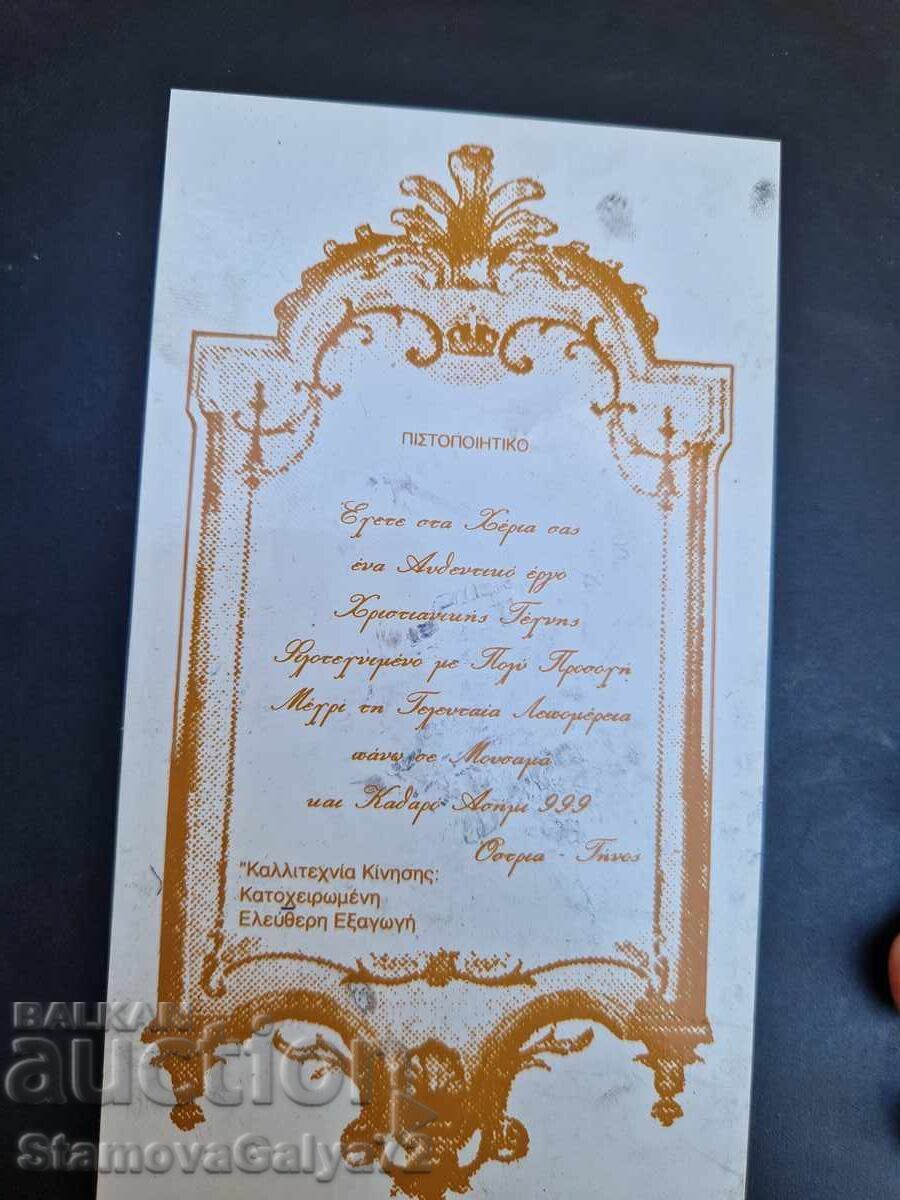 ΠΙΣΤΟΠΟΙΗΤΙΚΟ
Έχετε στα Χέρια σας
ένα Αυθεντικό έργο
Χριστιανικής Τέχνης
Φιλοτεχνιμένο με Πολύ Προσοχή
Μέχρι τη Τελευταία Λεπομέρεια
πάνω σε Μουσαμά
και Καθαρό Ασημι 999
Οστρια - Τήνος
"Καλλιτεχνία Κίνησης:
Κατοχειρωμένη
Ελεύθερη Εξαγωγή
BALKAN
auction
StamovaGalya72